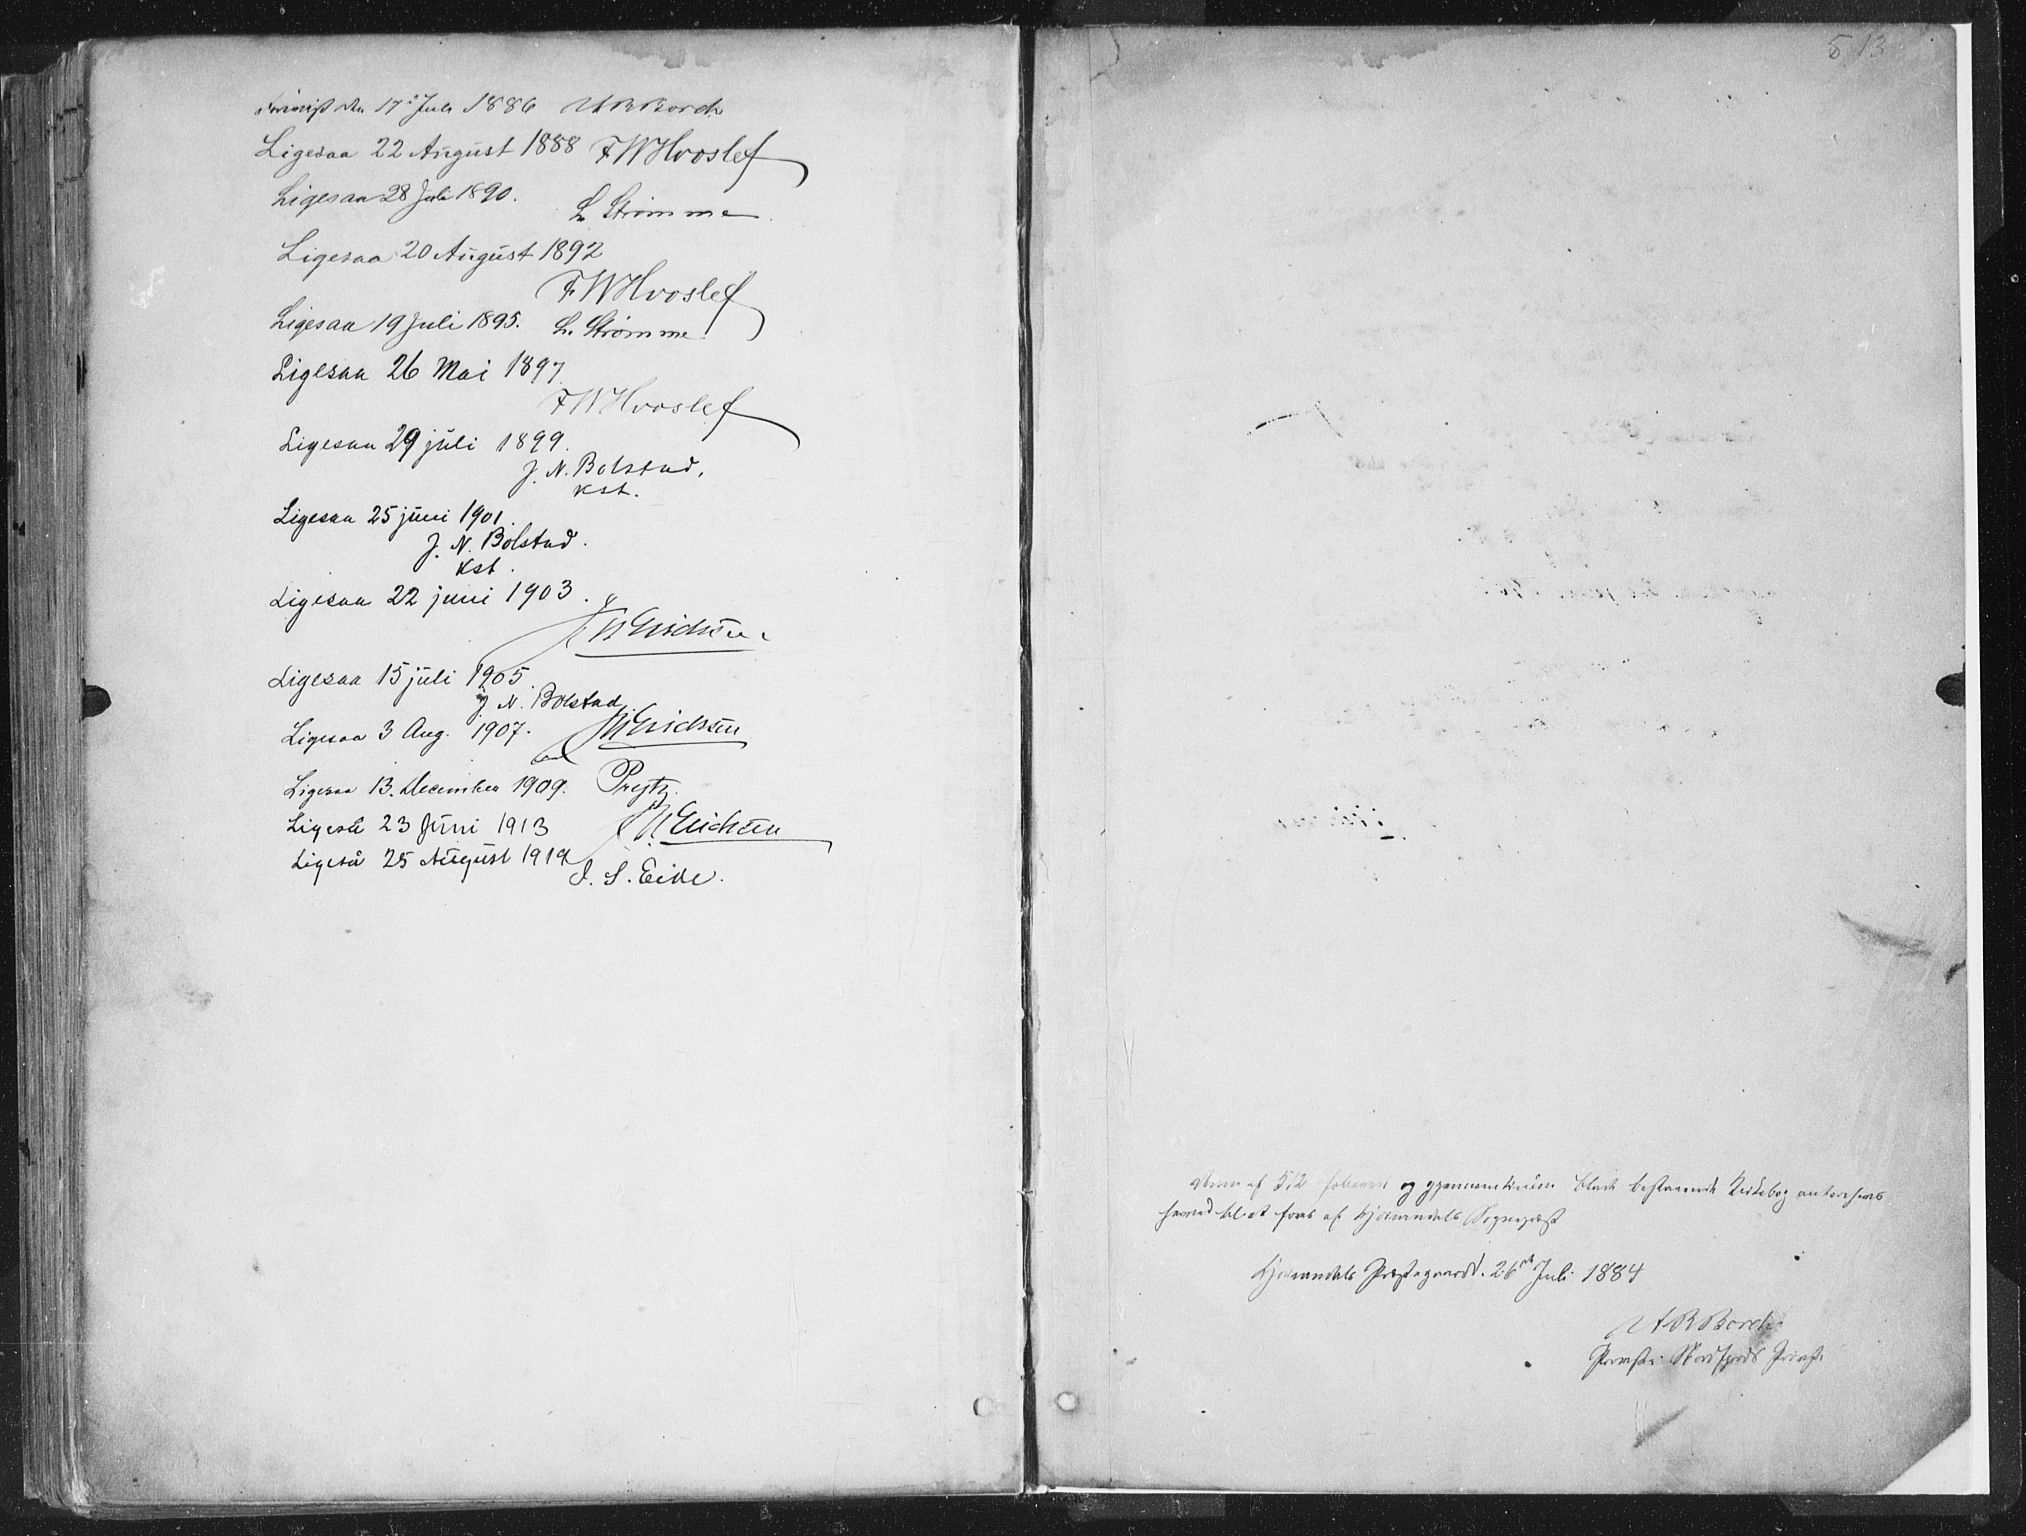 den 17de Juli 1886 A R Borch
Ligesaa 22 August 1888 F W Hvoslef
Ligesaa 28 Juli 1890.
L. Strømme
Ligesaa 20 August 1892
F W Hvoslef
Ligesaa 19 Juli 1895. L. Strømme
Ligesaa 26 Mai 1897
F W Hvoslef
Ligesaa 29 juli 1899.
J. N. Bolstad,
kst.
Ligesaa 25 juni 1901.
J. N. Bolstad.
kst.
Ligesaa 22 juni 1903.
Erichsen
Ligesaa 15 juli 1905
J. N. Bolstad
Ligesaa 3 Aug. 1907. Erichsen
Ligesaa 13. December 1909. Preytz.
Ligeså 23 Juni 1913 Erichsen
Ligeså 25 August 1919
J. S. Eide.
513
af 512 og gjennemdragne Blade bestaaende Kirkebog autoriseres
herved til at føres af Sognepræst
Præstegaard d. 26de Juli 1884
A R Borch
Provst i Provsti